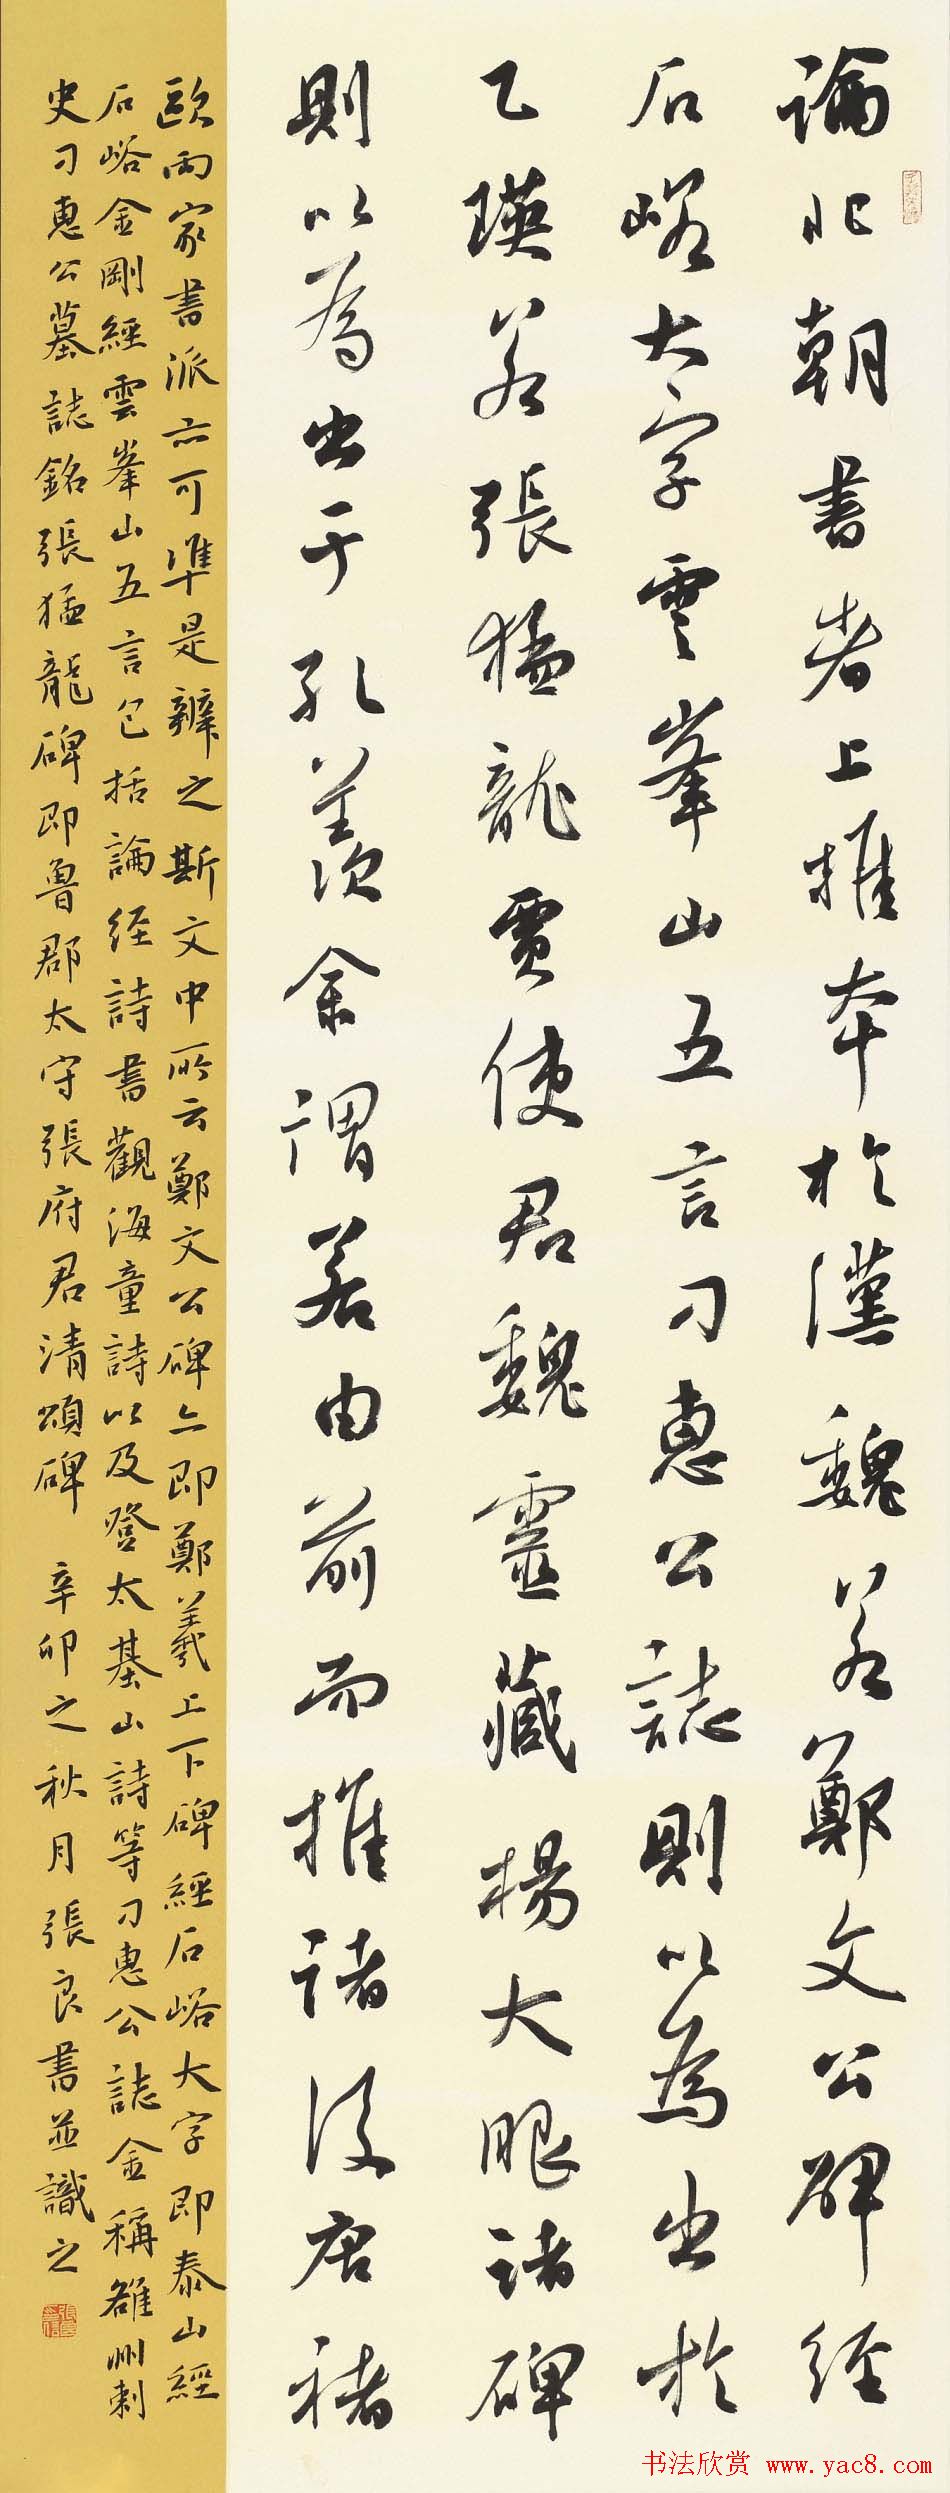 論北朝書者上推本於漢魏若鄭文公碑經
石峪大字雲峯山五言刁惠公誌則以為出於
乙瑛若張猛龍賈使君魏靈藏楊大眼諸碑
則以為出于孔羨余謂若由前而推諸後唐褚
歐兩家書派亦可準是辨之斯文中所云鄭文公碑亦即鄭羲上下碑經石峪大字即泰山經
石峪金剛經雲峯山五言包括論經詩書觀海童詩以及登太基山詩等刁惠公誌金稱雒州刺
史刁惠公墓誌銘張猛龍碑即魯郡太守張府君清頌碑 辛卯之秋月張良書並識之
书法欣赏 www.yac8.com